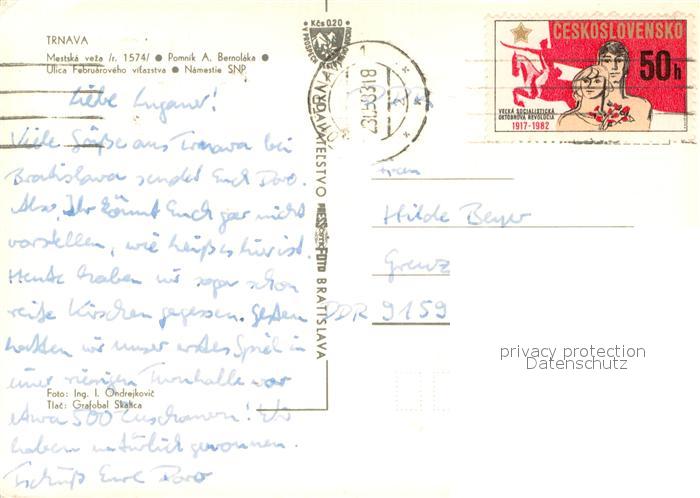 TRNAVA
Mestská veža /r. 1574/ ● Pomník A. Bernoláka ●
Ulica Februárového víťazstva ● Námestie SNP
Liebe Luganer!
Viele Grüße aus Trnava bei
Bratislava sendet Euch Doro.
Also, Ihr könnt Euch gar nicht
vorstellen, wie heiß es hier ist.
Heute haben wir sogar schon
reife Kirschen gegessen. Gestern
hatten wir unser erstes Spiel in
einer riesigen Turnhalle vor
etwa 500 Zuschauern! Wir
haben natürlich gewonnen.
Tschüß Eure Doro
Foto: Ing. I. Ondrejkovič
Tlač: Grafobal Skalica
Kčs 0,20
VYDAVATEĽSTVO PRESSFOTO BRATISLAVA
ČESKOSLOVENSKO
50h
VEĽKÁ SOCIALISTICKÁ
OKTÓBROVÁ REVOLÚCIA
1917-1982
DDR
Hilde Beyer
DDR 9159
privacy protection
Datenschutz